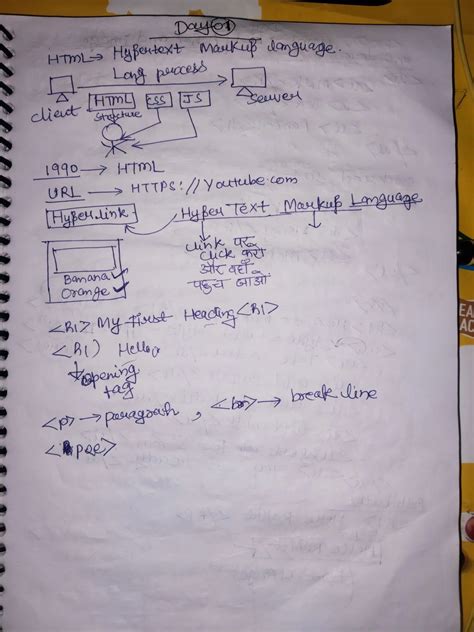 Day 01
HTML → Hypertext Markup language.
Long process
client
HTML
CSS
JS
server
structure
1990 → HTML
URL → HTTPS://Youtube.com
Hyper.link
Hyper Text Markup Language
link पर
click करो
और वहाँ
पहुच जाओ
Banana ✓
Orange ✓
<h1> My first Heading <h1>
<h1) Hello
opening
tag
<p> → paragraph, <br> → break line